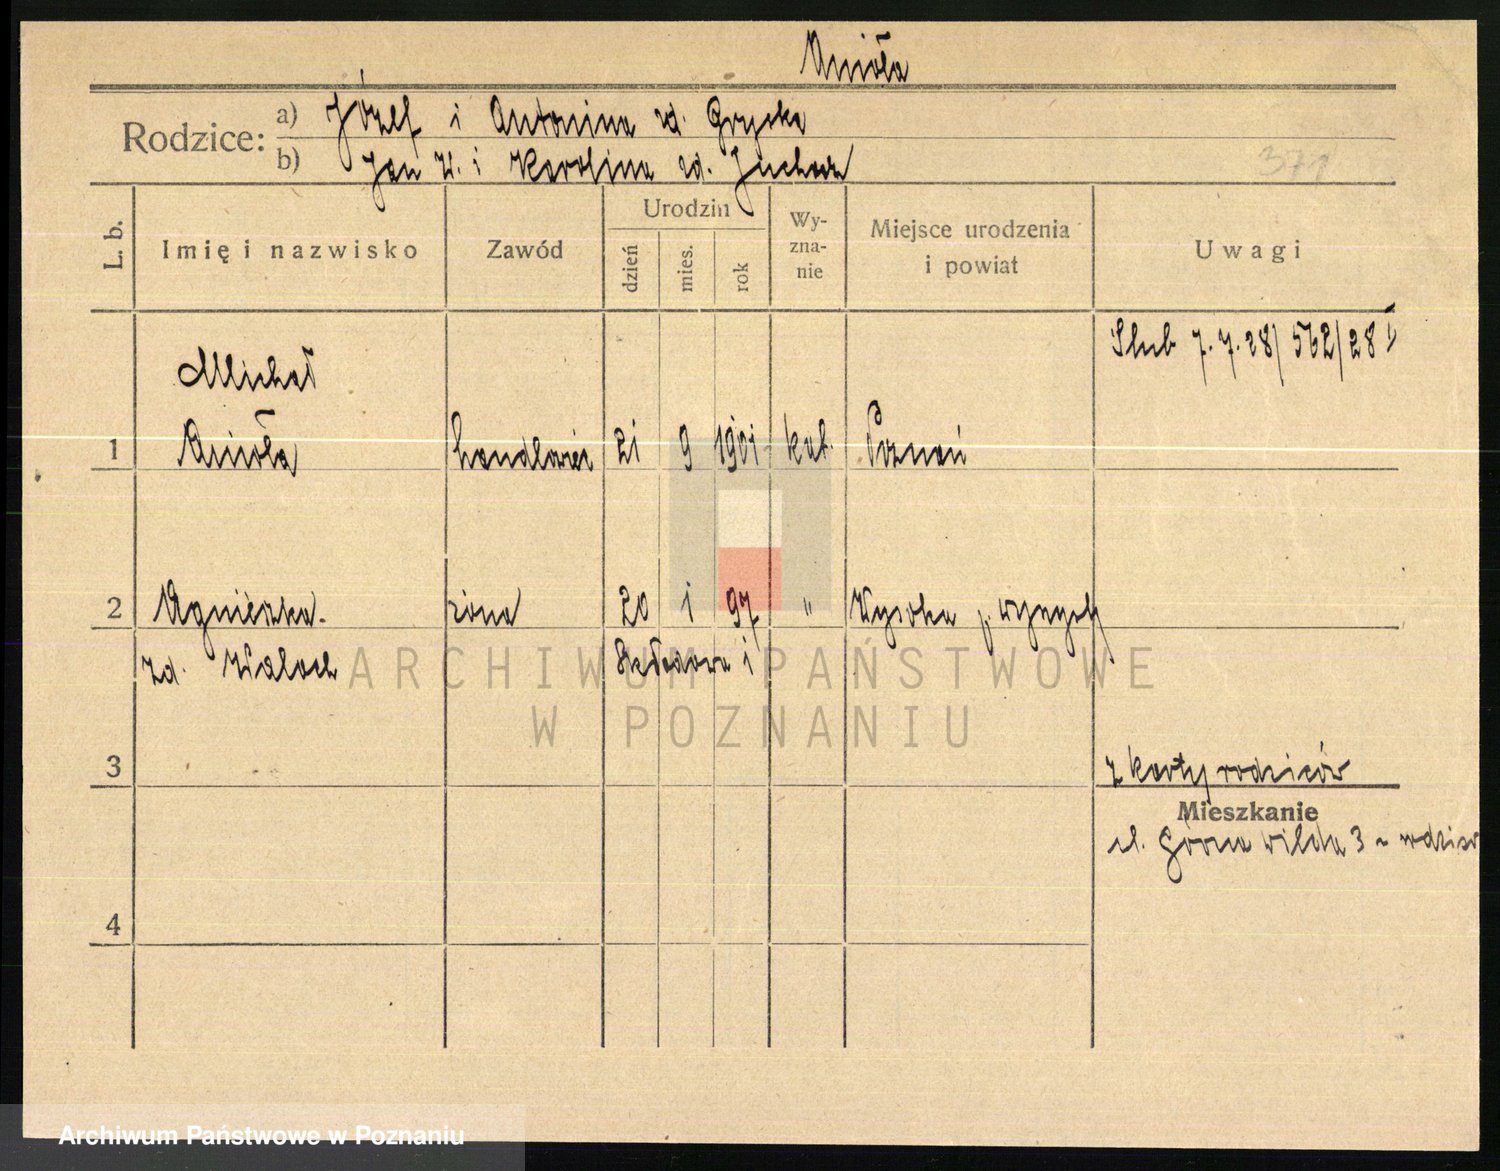 Anioła
Rodzice:
a) Józef i Antonina zd. Gryska
b) Jan W. i Karolina zd.
L. b.
Imię i nazwisko
Zawód
Urodzin
dzień
mies.
rok
Wy-
zna-
nie
Miejsce urodzenia
i powiat
Uwagi
Ślub 7.7.28/ 562/28
Michał
1 Anioła handlowiec 21 9 1901 kat. Poznań
2 Agnieszka żona 20 1 97 " Wysoka p.
zd. Waloch
ARCHIWUM PAŃSTWOWE
W POZNANIU
3
z karty rodziców
Mieszkanie
ul. Górna Wilda 3
4
Archiwum Państwowe w Poznaniu